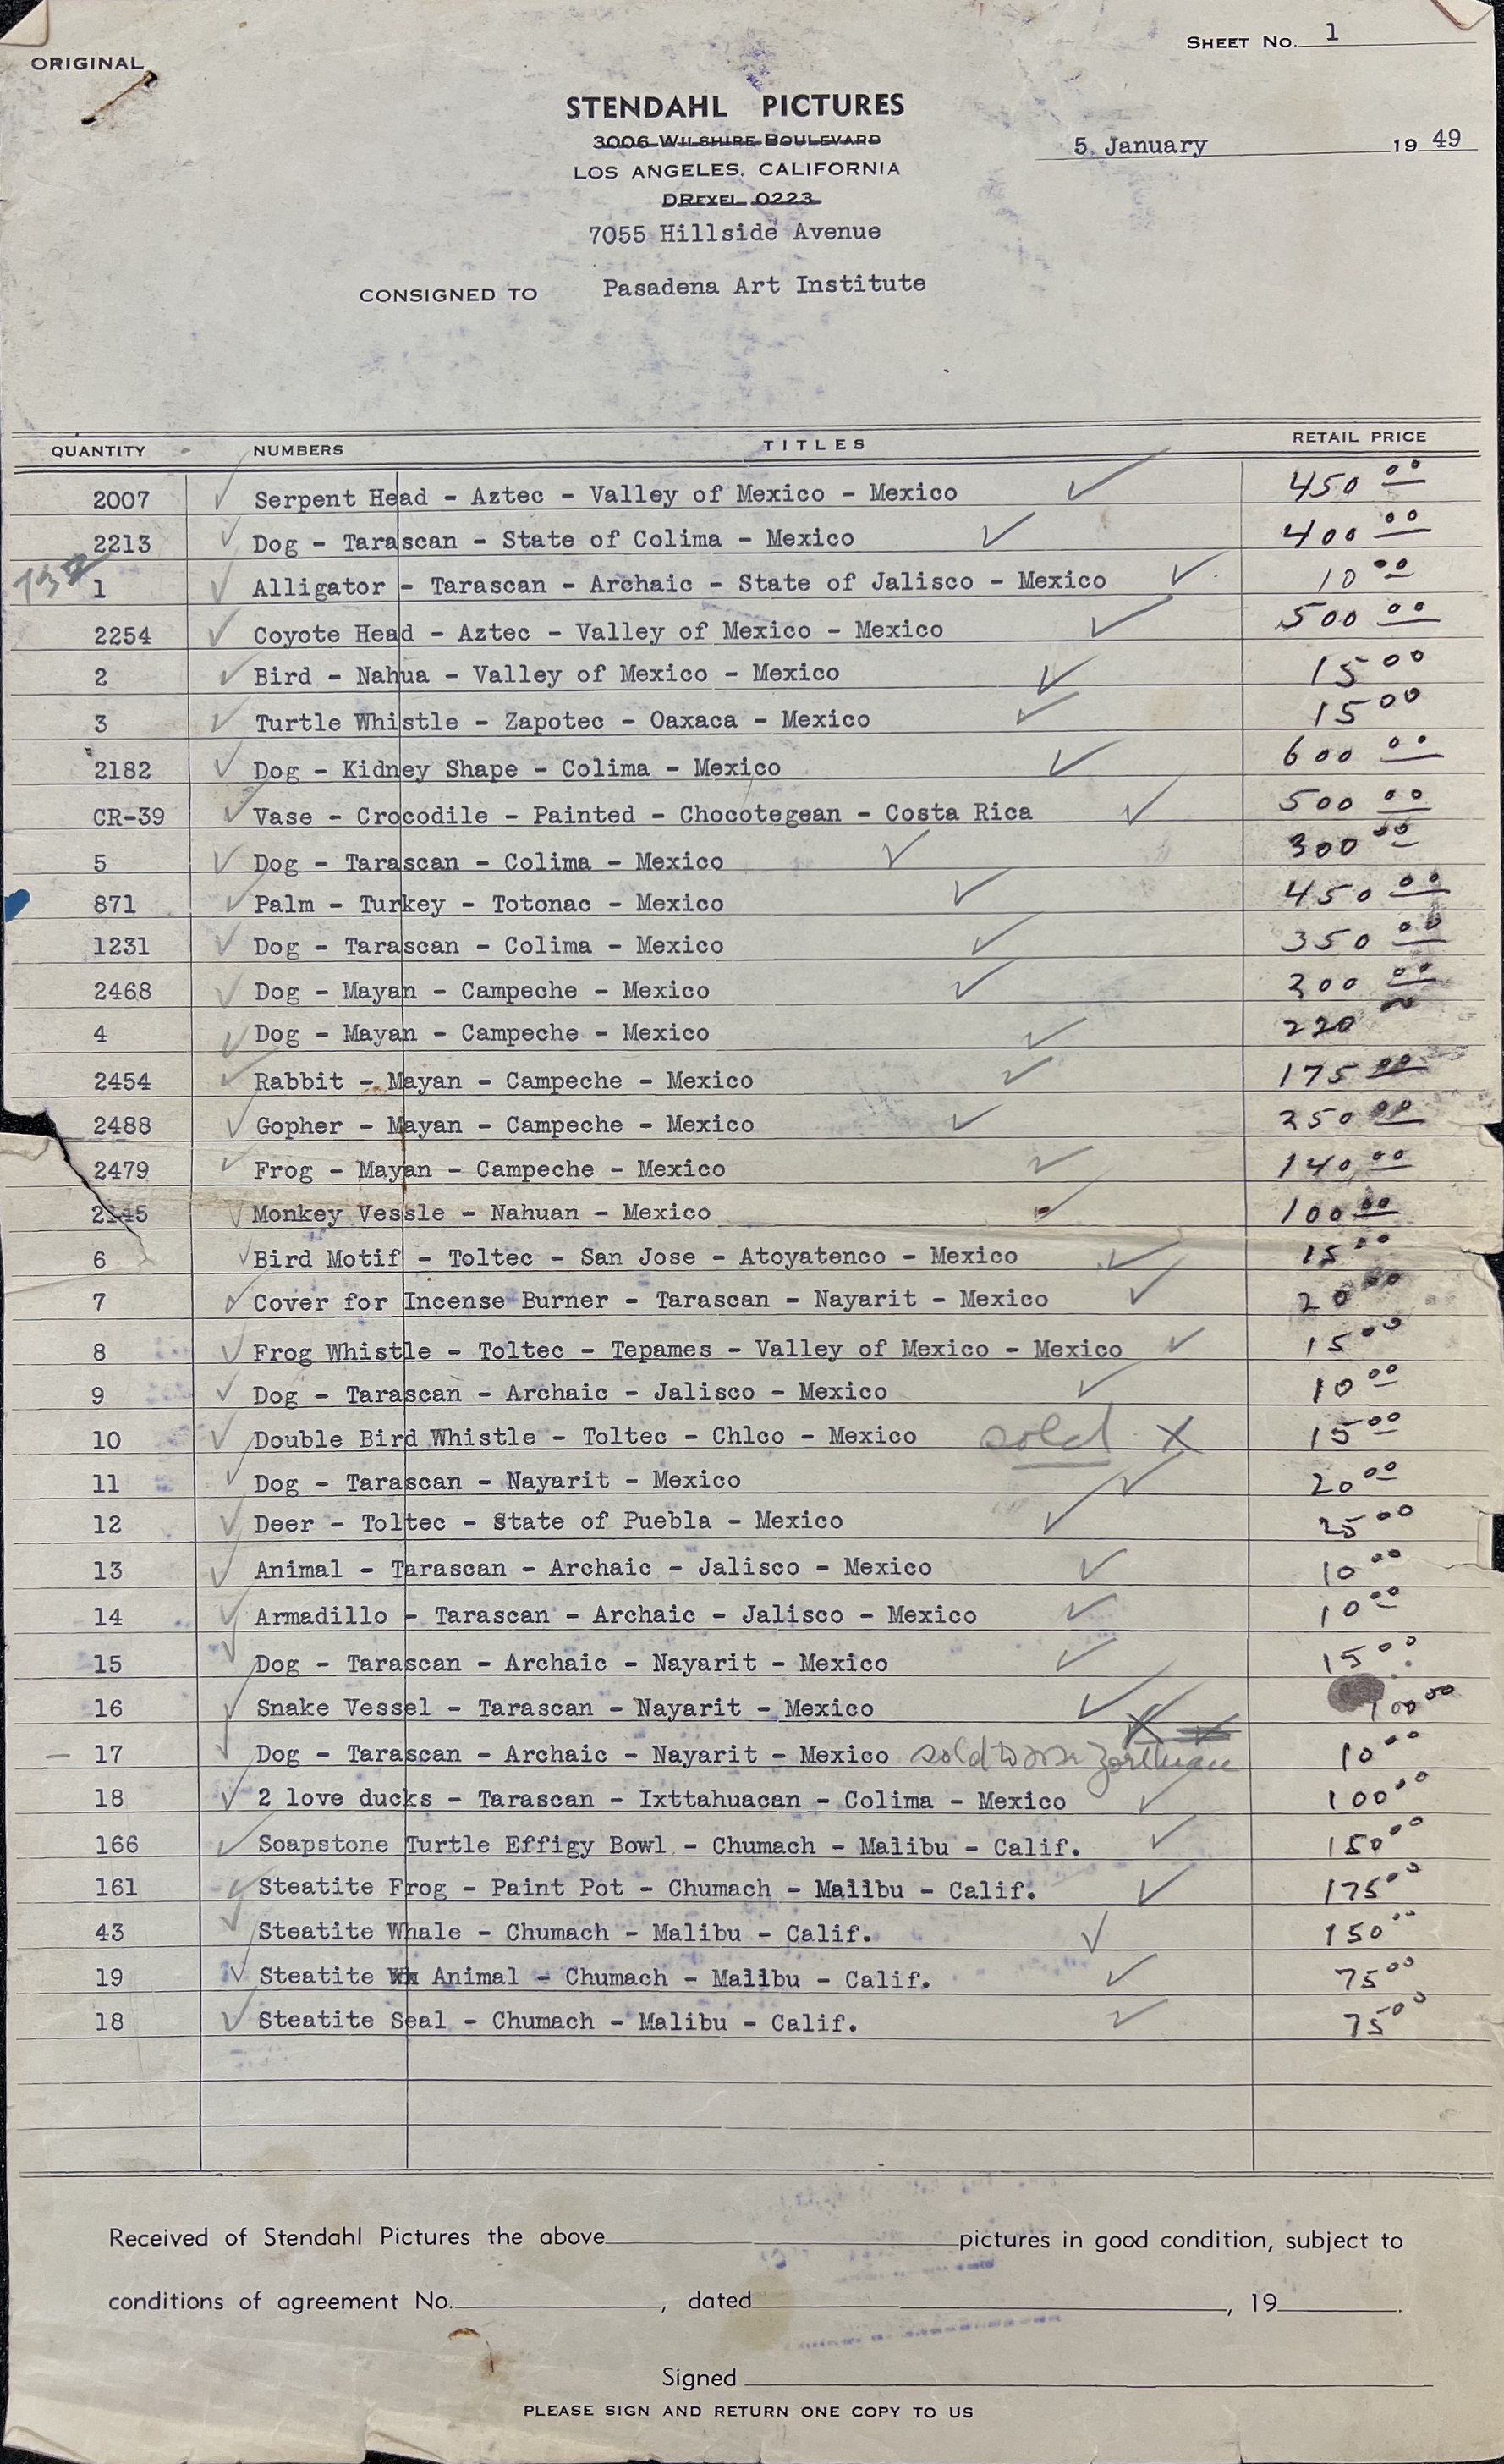 ORIGINAL
SHEET No. 1
STENDAHL PICTURES
3006 WILSHIRE BOULEVARD
5 January 19 49
LOS ANGELES, CALIFORNIA
DREXEL 0223
7055 Hillside Avenue
CONSIGNED TO Pasadena Art Institute
QUANTITY NUMBERS TITLES RETAIL PRICE
2007 Serpent Head - Aztec - Valley of Mexico - Mexico 450 00
2213 Dog - Tarascan - State of Colima - Mexico 400 00
1 Alligator - Tarascan - Archaic - State of Jalisco - Mexico 10 00
2254 Coyote Head - Aztec - Valley of Mexico - Mexico 500 00
2 Bird - Nahua - Valley of Mexico - Mexico 15 00
3 Turtle Whistle - Zapotec - Oaxaca - Mexico 15 00
2182 Dog - Kidney Shape - Colima - Mexico 600 00
CR-39 Vase - Crocodile - Painted - Chocotegean - Costa Rica 500 00
5 Dog - Tarascan - Colima - Mexico 300 00
871 Palm - Turkey - Totonac - Mexico 450 00
1231 Dog - Tarascan - Colima - Mexico 350 00
2468 Dog - Mayan - Campeche - Mexico 200 00
4 Dog - Mayan - Campeche - Mexico 220
2454 Rabbit - Mayan - Campeche - Mexico 175 00
2488 Gopher - Mayan - Campeche - Mexico 250 00
2479 Frog - Mayan - Campeche - Mexico 140 00
Monkey Vessle - Nahuan - Mexico 100 00
6 Bird Motif - Toltec - San Jose - Atoyatenco - Mexico 15 00
7 Cover for Incense Burner - Tarascan - Nayarit - Mexico 20 00
8 Frog Whistle - Toltec - Tepames - Valley of Mexico - Mexico 15 00
9 Dog - Tarascan - Archaic - Jalisco - Mexico 10 00
10 Double Bird Whistle - Toltec - Chlco - Mexico sold X 15 00
11 Dog - Tarascan - Nayarit - Mexico 20 00
12 Deer - Toltec - State of Puebla - Mexico 25 00
13 Animal - Tarascan - Archaic - Jalisco - Mexico 10 00
14 Armadillo - Tarascan - Archaic - Jalisco - Mexico 10 00
15 Dog - Tarascan - Archaic - Nayarit - Mexico 15 00
16 Snake Vessel - Tarascan - Nayarit - Mexico 100 00
17 Dog - Tarascan - Archaic - Nayarit - Mexico sold to X 10 00
18 2 love ducks - Tarascan - Ixttahuacan - Colima - Mexico 100 00
166 Soapstone Turtle Effigy Bowl - Chumach - Malibu - Calif. 150 00
161 Steatite Frog - Paint Pot - Chumach - Malibu - Calif. 175 00
43 Steatite Whale - Chumach - Malibu - Calif. 150 00
19 Steatite Animal - Chumach - Malibu - Calif. 75 00
18 Steatite Seal - Chumach - Malibu - Calif. 75 00
Received of Stendahl Pictures the above pictures in good condition, subject to
conditions of agreement No. , dated , 19 .
Signed
PLEASE SIGN AND RETURN ONE COPY TO US